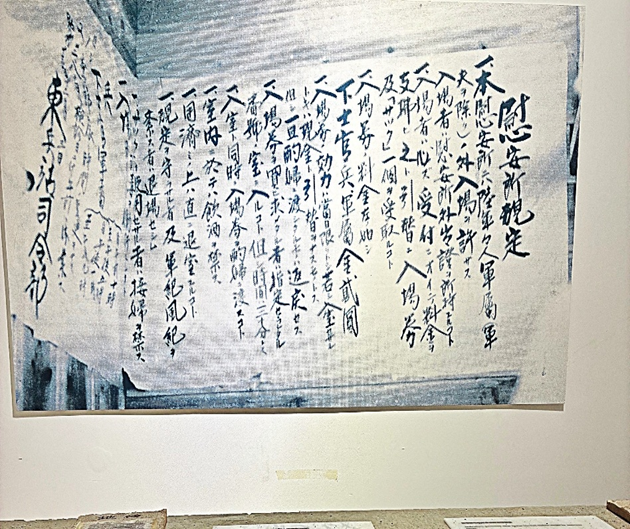 慰安所規定
一、本慰安所ニハ陸軍々人軍属(軍
夫ヲ除ク)ノ外入場ヲ許サス
入場者ハ慰安所外出証ヲ所持スルコト
一、入場者ハ必ス受付ニオイテ料金ヲ
支拂ヒ之ト引替ニ入場券
及「サック」一個ヲ受取ルコト
一、入場券ノ料金左ノ如シ
下士官、兵、軍属金貳圓
一、入場券ノ効力ハ當日限リトシ若シ入室セサル
トキハ現金ト引替ヲナスモノトス
但シ一旦酌婦ニ渡シタルモノハ返戻セス
一、入場券ヲ買求メタル者ハ指定セラレタル
番號ノ室ニ入ルコト但シ時間ハ三十分トス
一、入室ト同時ニ入場券ヲ酌婦ニ渡スコト
一、室内ニ於テハ飲酒ヲ禁ス
一、用済ミノ上ハ直ニ退室スルコト
一、規定ヲ守ラサル者及軍紀風紀ヲ
紊ス者ハ退場セシム
一、サックヲ使用セサル者ハ接婦ヲ禁ス
東兵站司令部